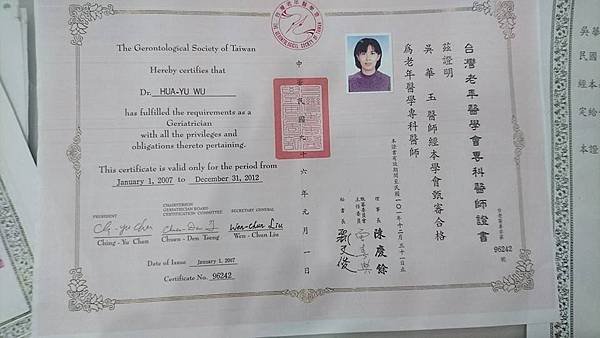 The Gerontological Society of Taiwan
Hereby certifies that
Dr. HUA-YU WU
has fulfilled the requirements as a
Geriatrician
with all the privileges and
obligations thereto pertaining.
This certificate is valid only for the period from
January 1, 2007 to December 31, 2012
PRESIDENT
Ching-Yu Chen
CHAIRPERSON
GERIATRICIAN BOARD
CERTIFICATION COMMITTEE
Chuen-Den Tseng
SECRETARY GENERAL
Wen-Chun Liu
Date of Issue January 1, 2007
Certificate No. 96242
台灣老年醫學會專科醫師證書
台老專醫字第
96242
號
茲證明
吳華玉醫師經本學會甄審合格
為老年醫學專科醫師
本證書有效期間至民國一〇一年十二月三十一日止
理事長 陳慶餘
秘書長
中華民國九十六年元月一日